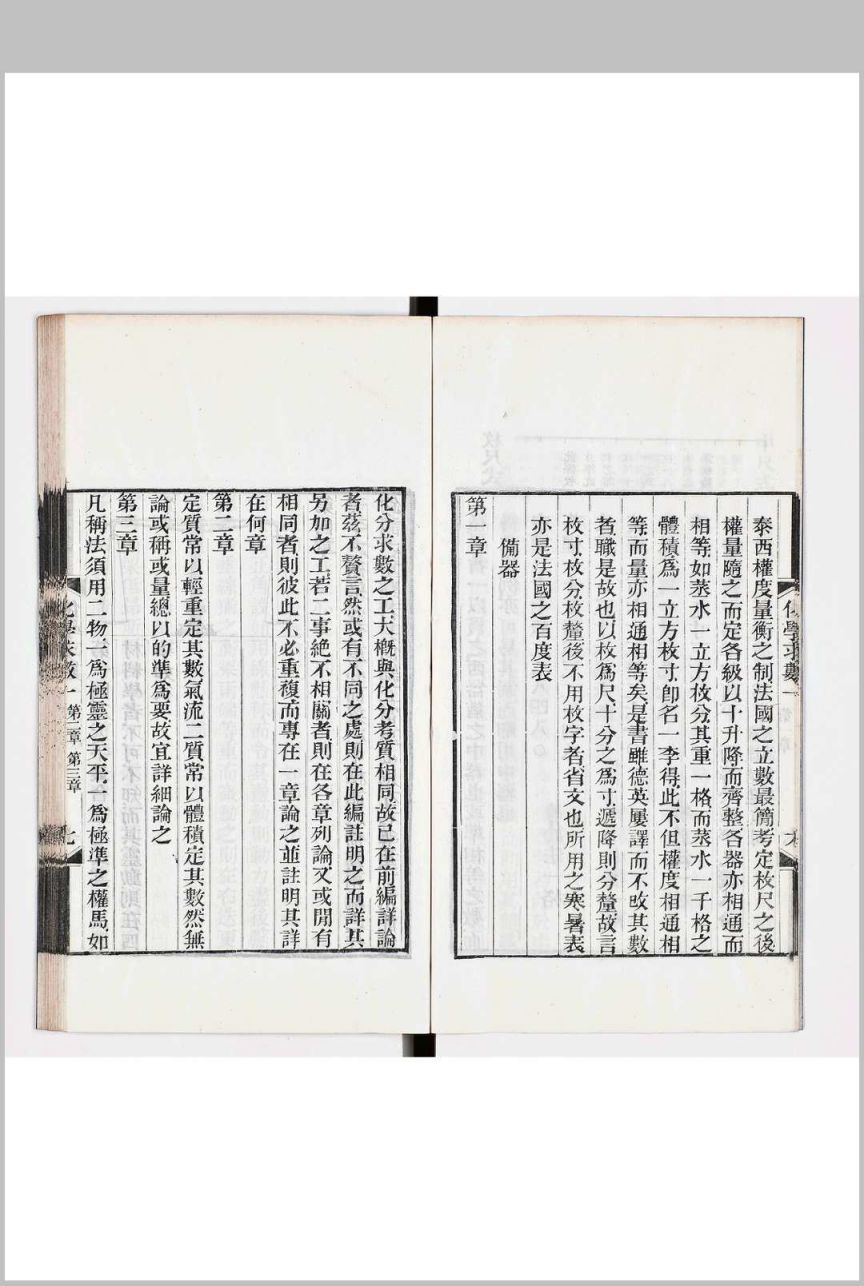 泰西權度量衡之制法國之立數最簡考定枚尺之後
權量隨之而定各級以十升降而齊整各器亦相通而
相等如蒸水一立方枚分其重一格而蒸水一千格之
體積爲一立方枚寸卽名一李得此不但權度相通相
等而量亦相通相等矣是書雖德英屢譯而不改其數
者職是故也以枚爲尺十分之爲寸遞降則分釐故言
枚寸枚分枚釐後不用枚字者省文也所用之寒暑表
亦是法國之百度表
備器
第一章
化分求數之工大概與化分考質相同故已在前編詳論
者茲不贅言然或有不同之處則在此編註明之而詳其
另加之工若二事絶不相關者則在各章列論又或閒有
相同者則彼此不必重複而專在一章論之並註明其詳
在何章
第二章
定質常以輕重定其數氣流二質常以體積定其數然無
論或稱或量總以的準爲要故宜詳細論之
第三章
凡稱法須用二物一爲極靈之天平一爲極準之權馬如
化學求數一 第二章 第三章 七